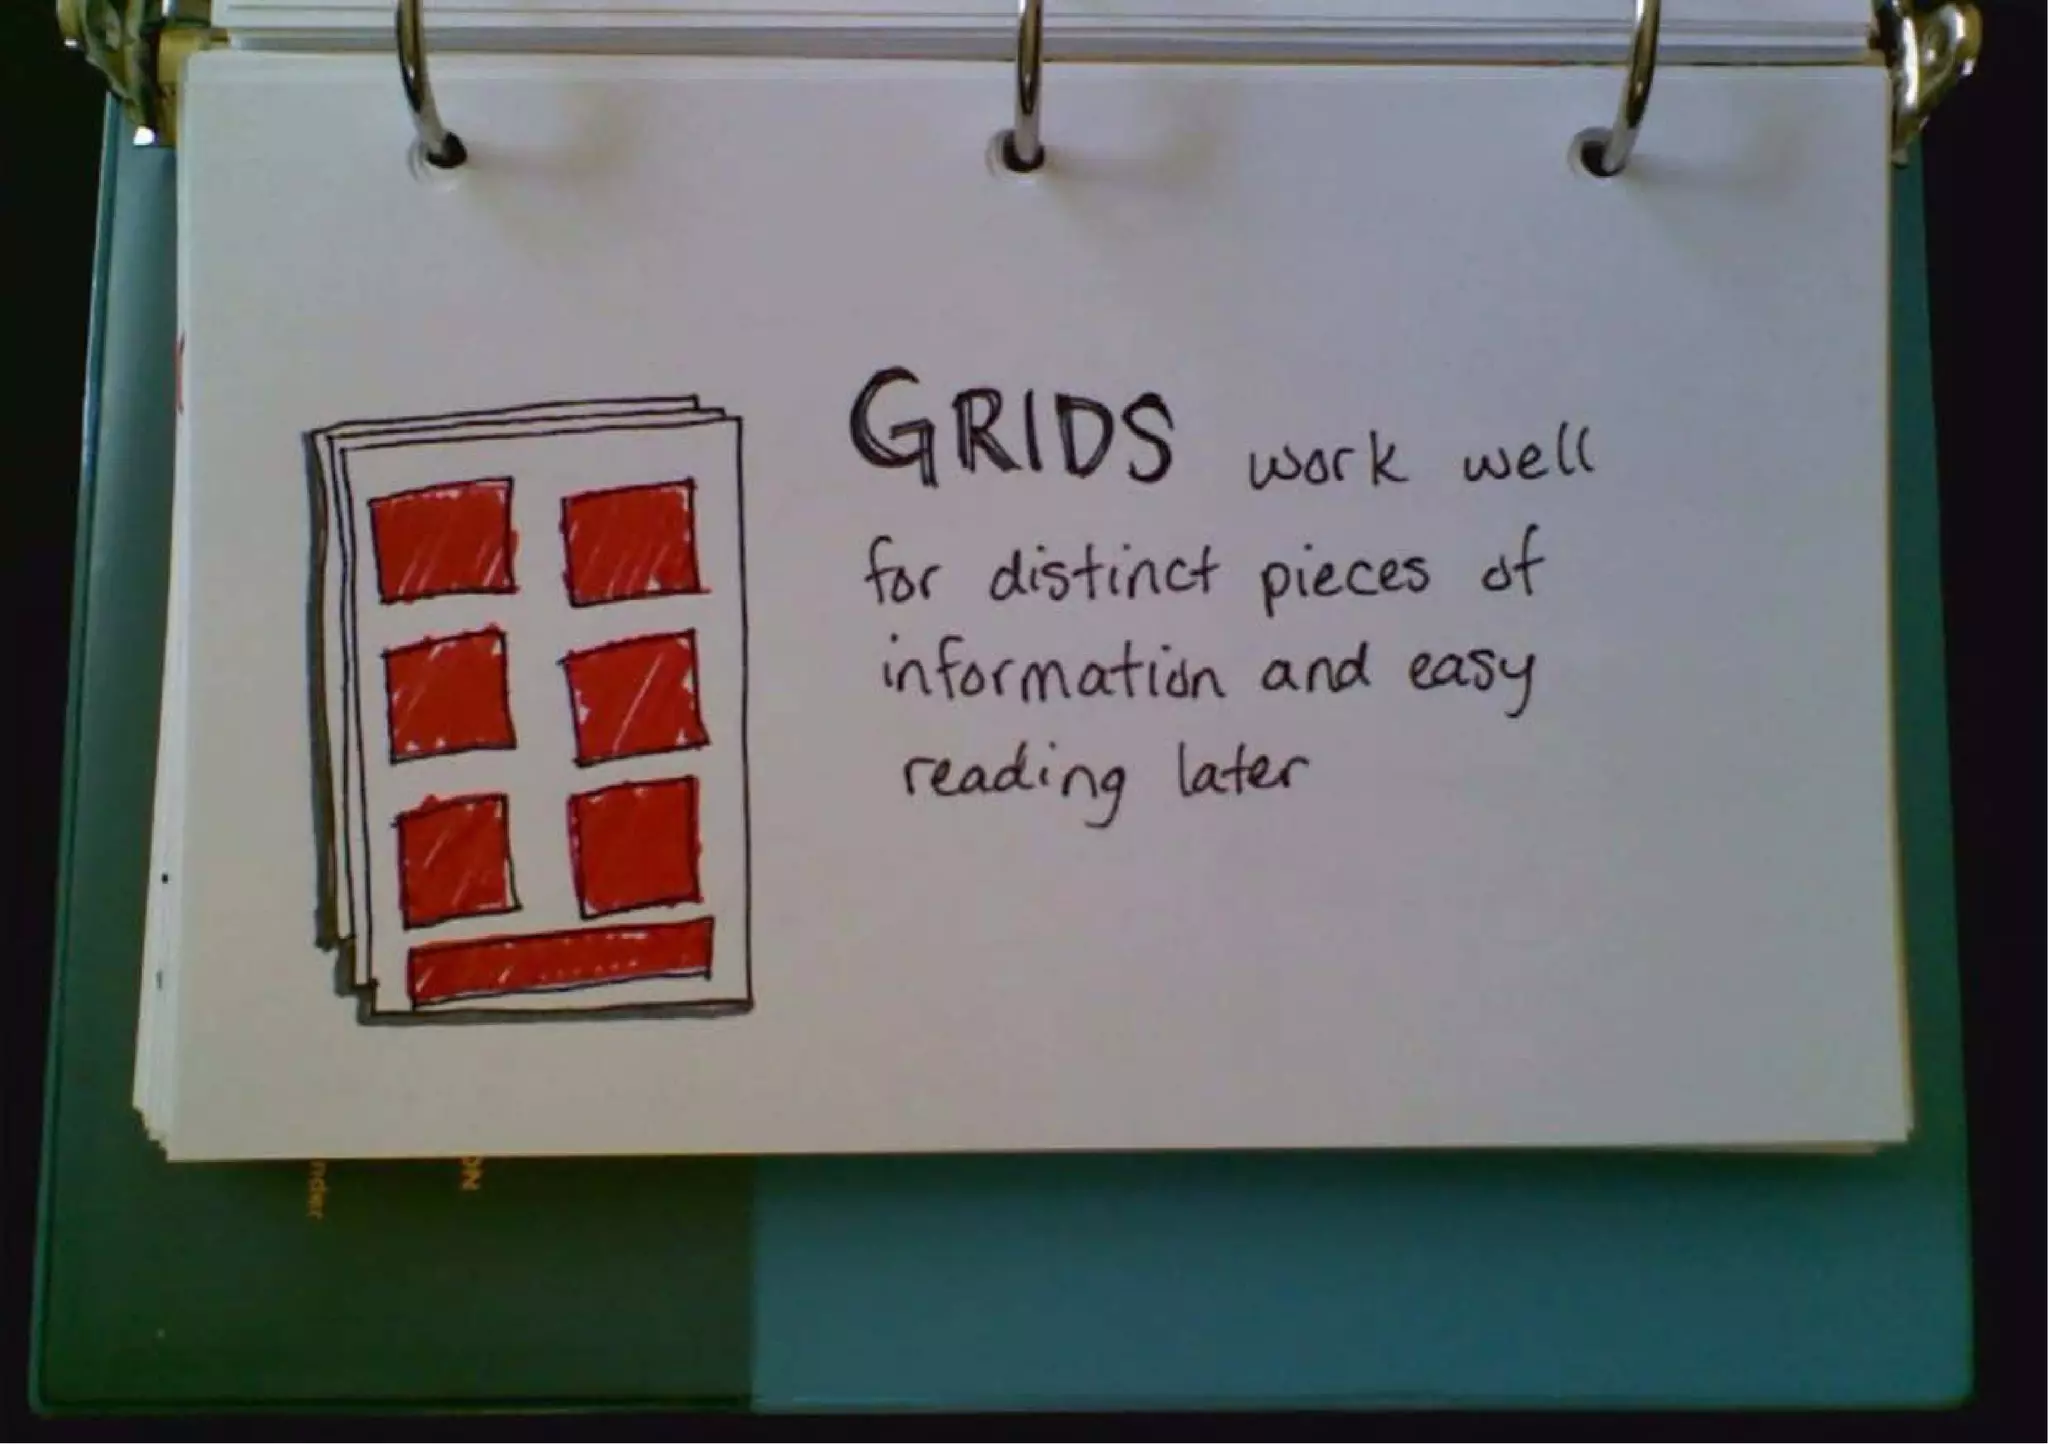 GRIDS work well
for distinct pieces of
information and easy
reading later
ON
nder